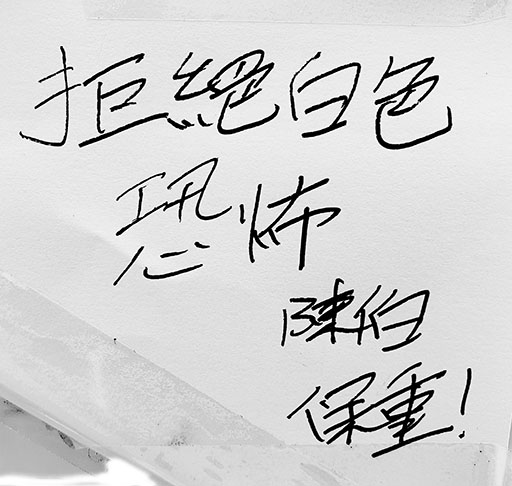 拒絕白色
恐怖
陳伯
保重!